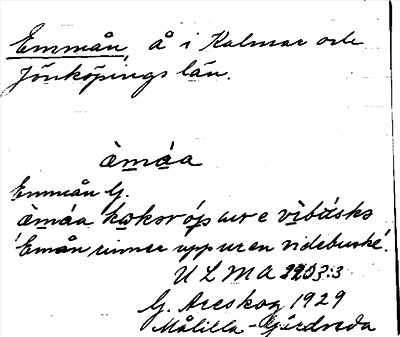 Emmån, å i Kalmar och
Jönköpings län.
èmáa
Emmån G.
èmáa
'Emån rinner upp ur en videbuske'.
ULMA 2203:3
G. Areskog 1929
Målilla-Gårdveda